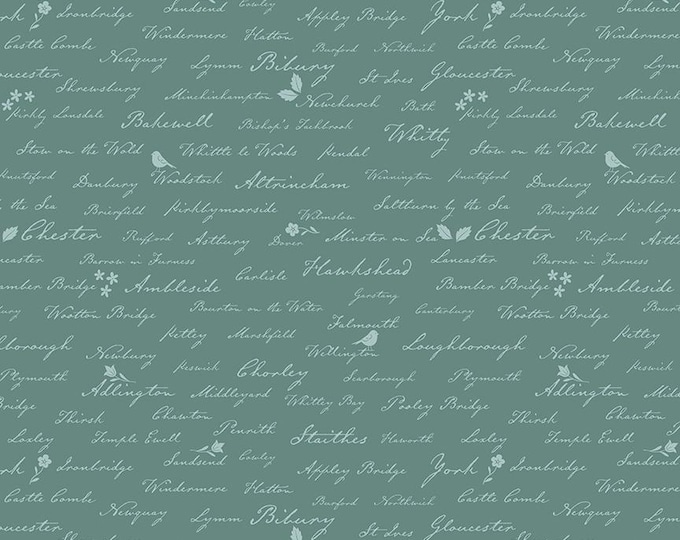 Sandsend Appley Bridge York Ironbridge Sandsend
Ironbridge Windermere Hatton Windermere
Castle Combe Burford Northwich Castle Combe
Newquay Lymm Bibury St Ives Gloucester Newquay
Gloucester Shrewsbury Minchinhampton Newchurch Bath Shrewsbury Minchinhampton
Kirkby Lonsdale Bakewell Bishop's Tachbrook Whitty Kirkby Lonsdale Bakewell
Stow on the Wold Whittle le Woods Kendal Stow on the Wold Whittle
Knutsford Danbury Woodstock Altrincham Wennington Knutsford Danbury Woodstock
by the Sea Brierfield Kirkbymoorside Wilmslow Saltturn by the Sea Brierfield Kirkbymoorside
Chester Rufford Astbury Dover Minster on Sea Chester Rufford Astbury
Lancaster Barrow in Furness Carlisle Hawkshead Lancaster Barrow in Furness
Bamber Bridge Ambleside Garstang Bamber Bridge Ambleside
Wootton Bridge Bourton on the Water Falmouth Canterbury Wootton Bridge Bourton on the
Loughborough Newbury Ketley Marshfield Willington Loughborough Newbury Ketley
Plymouth Keswick Chorley Scarborough Plymouth Keswick
Adlington Middleyard Whittey Bay Pooley Bridge Adlington Middleyard
Thirsk Chawton Penrith Thirsk Chawton
Loxley Temple Ewell Staithes Haworth Loxley Temple Ewell
York Ironbridge Sandsend Cowley Appley Bridge York Ironbridge Sandsend
Castle Combe Windermere Hatton Burford Northwich Castle Combe Windermere
Gloucester Newquay Lymm Bibury St Ives Gloucester Newquay